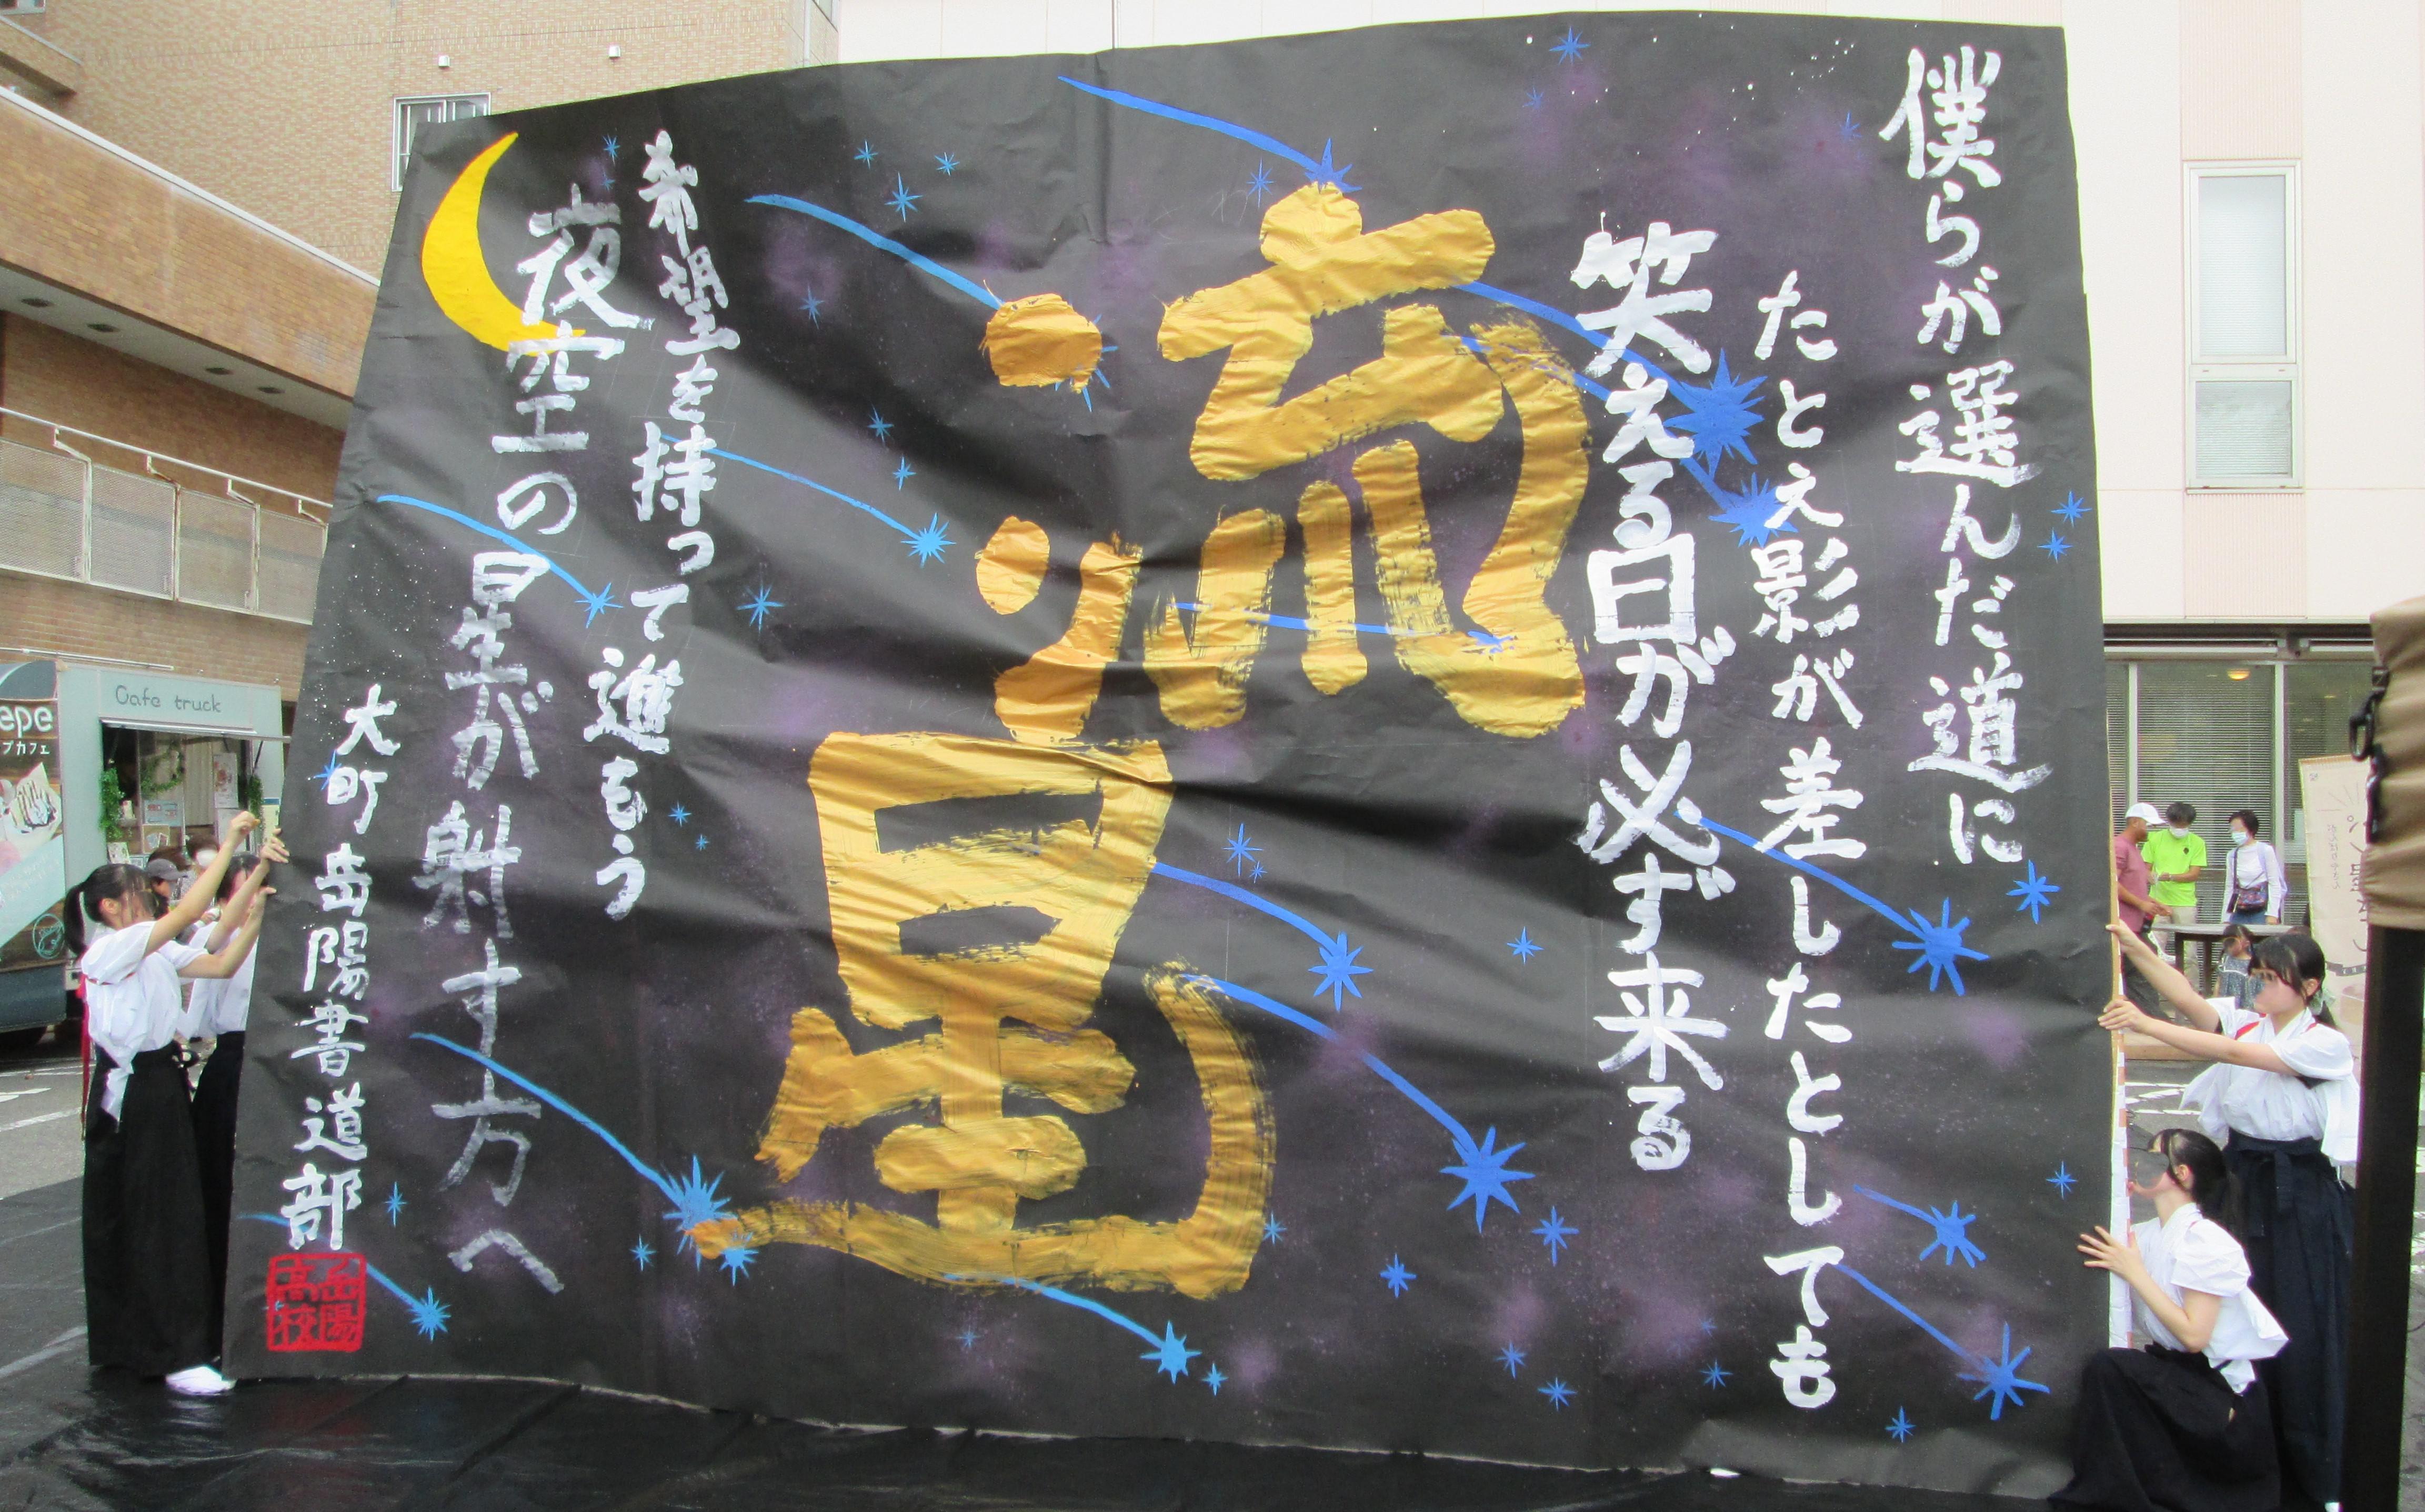 僕らが選んだ道に
たとえ影が差したとしても
笑える日が必ず来る
流星
希望を持って進もう
夜空の星が射す方へ
大町岳陽書道部
岳陽
高校
Cafe truck
epe
プカフェ